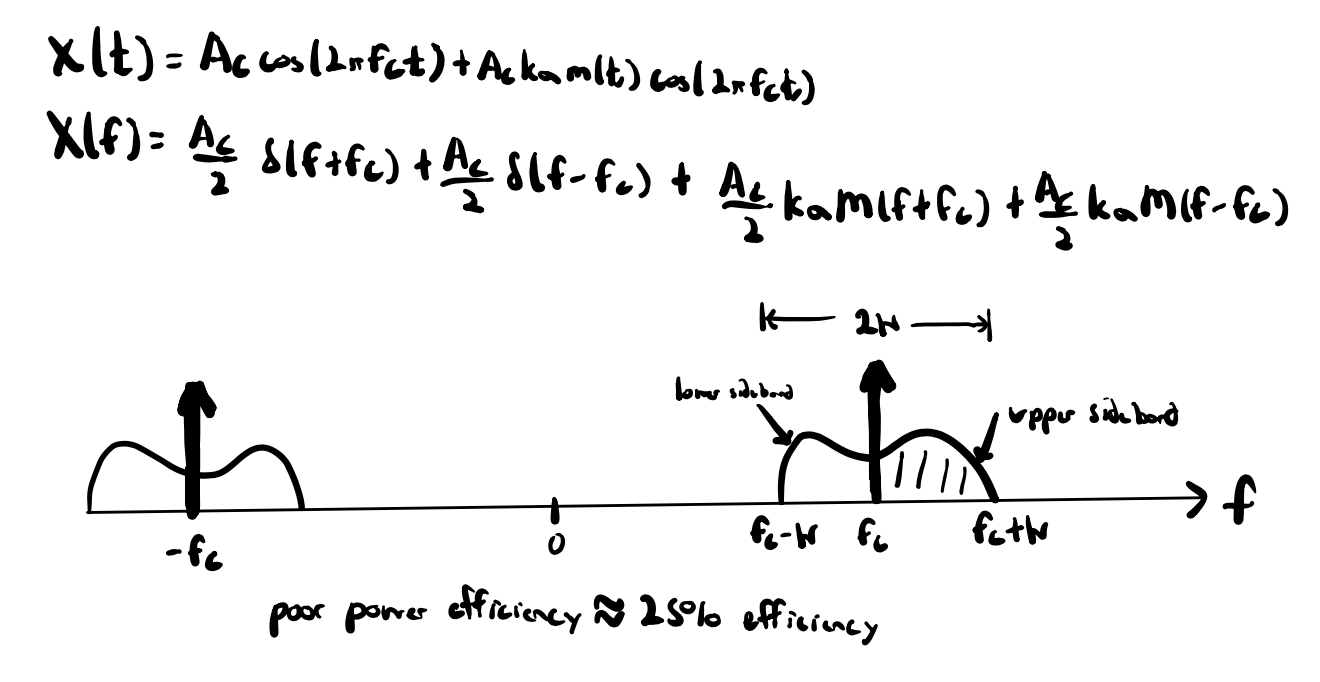 x(t) = A_c cos(2πf_ct) + A_c k_a m(t) cos(2πf_ct)
X(f) = A_c/2 δ(f+f_c) + A_c/2 δ(f-f_c) + A_c/2 k_a M(f+f_c) + A_c/2 k_a M(f-f_c)
2W
lower sideband
upper sideband
f
-f_c
0
f_c-W
f_c
f_c+W
poor power efficiency ≈ 25% efficiency